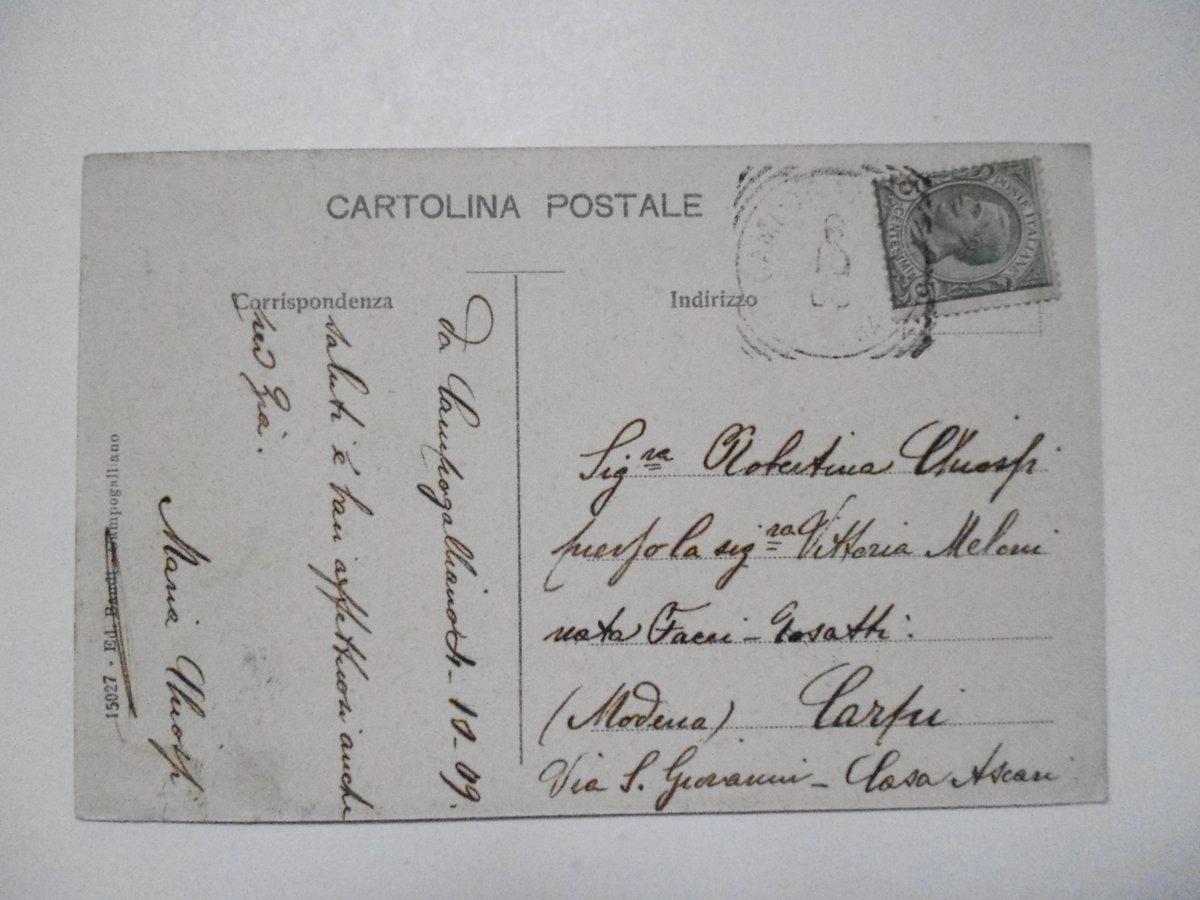 CARTOLINA POSTALE
Corrispondenza
Indirizzo
POSTE ITALIANE
CENTESIMI
5 5
da Campogalliano 4-10-09.
saluti e baci affettuosi anche
Zia.
Maria
Sig.ra Robertina
presso la sig.ra Vittoria Meloni
nata Facci - Rosatti.
(Modena) Carpi
Via S. Giovanni - Casa Ascari
15027 - Ed. Bandi Campogalliano